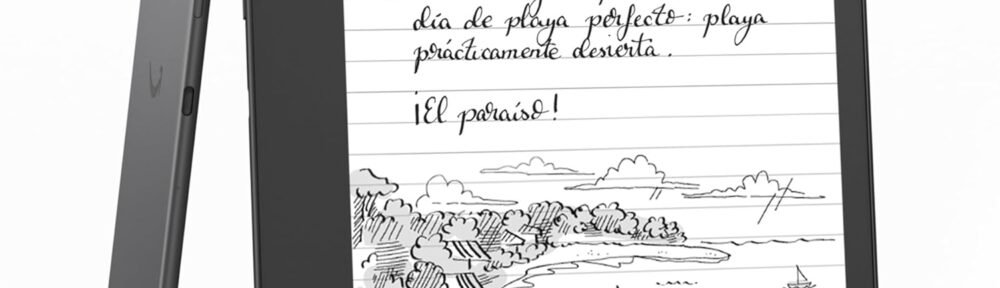 día de playa perfecto: playa
prácticamente desierta.
¡El paraíso!